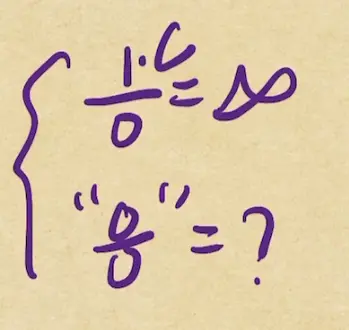 { 1·C/0 = ∞
"0/0" = ?